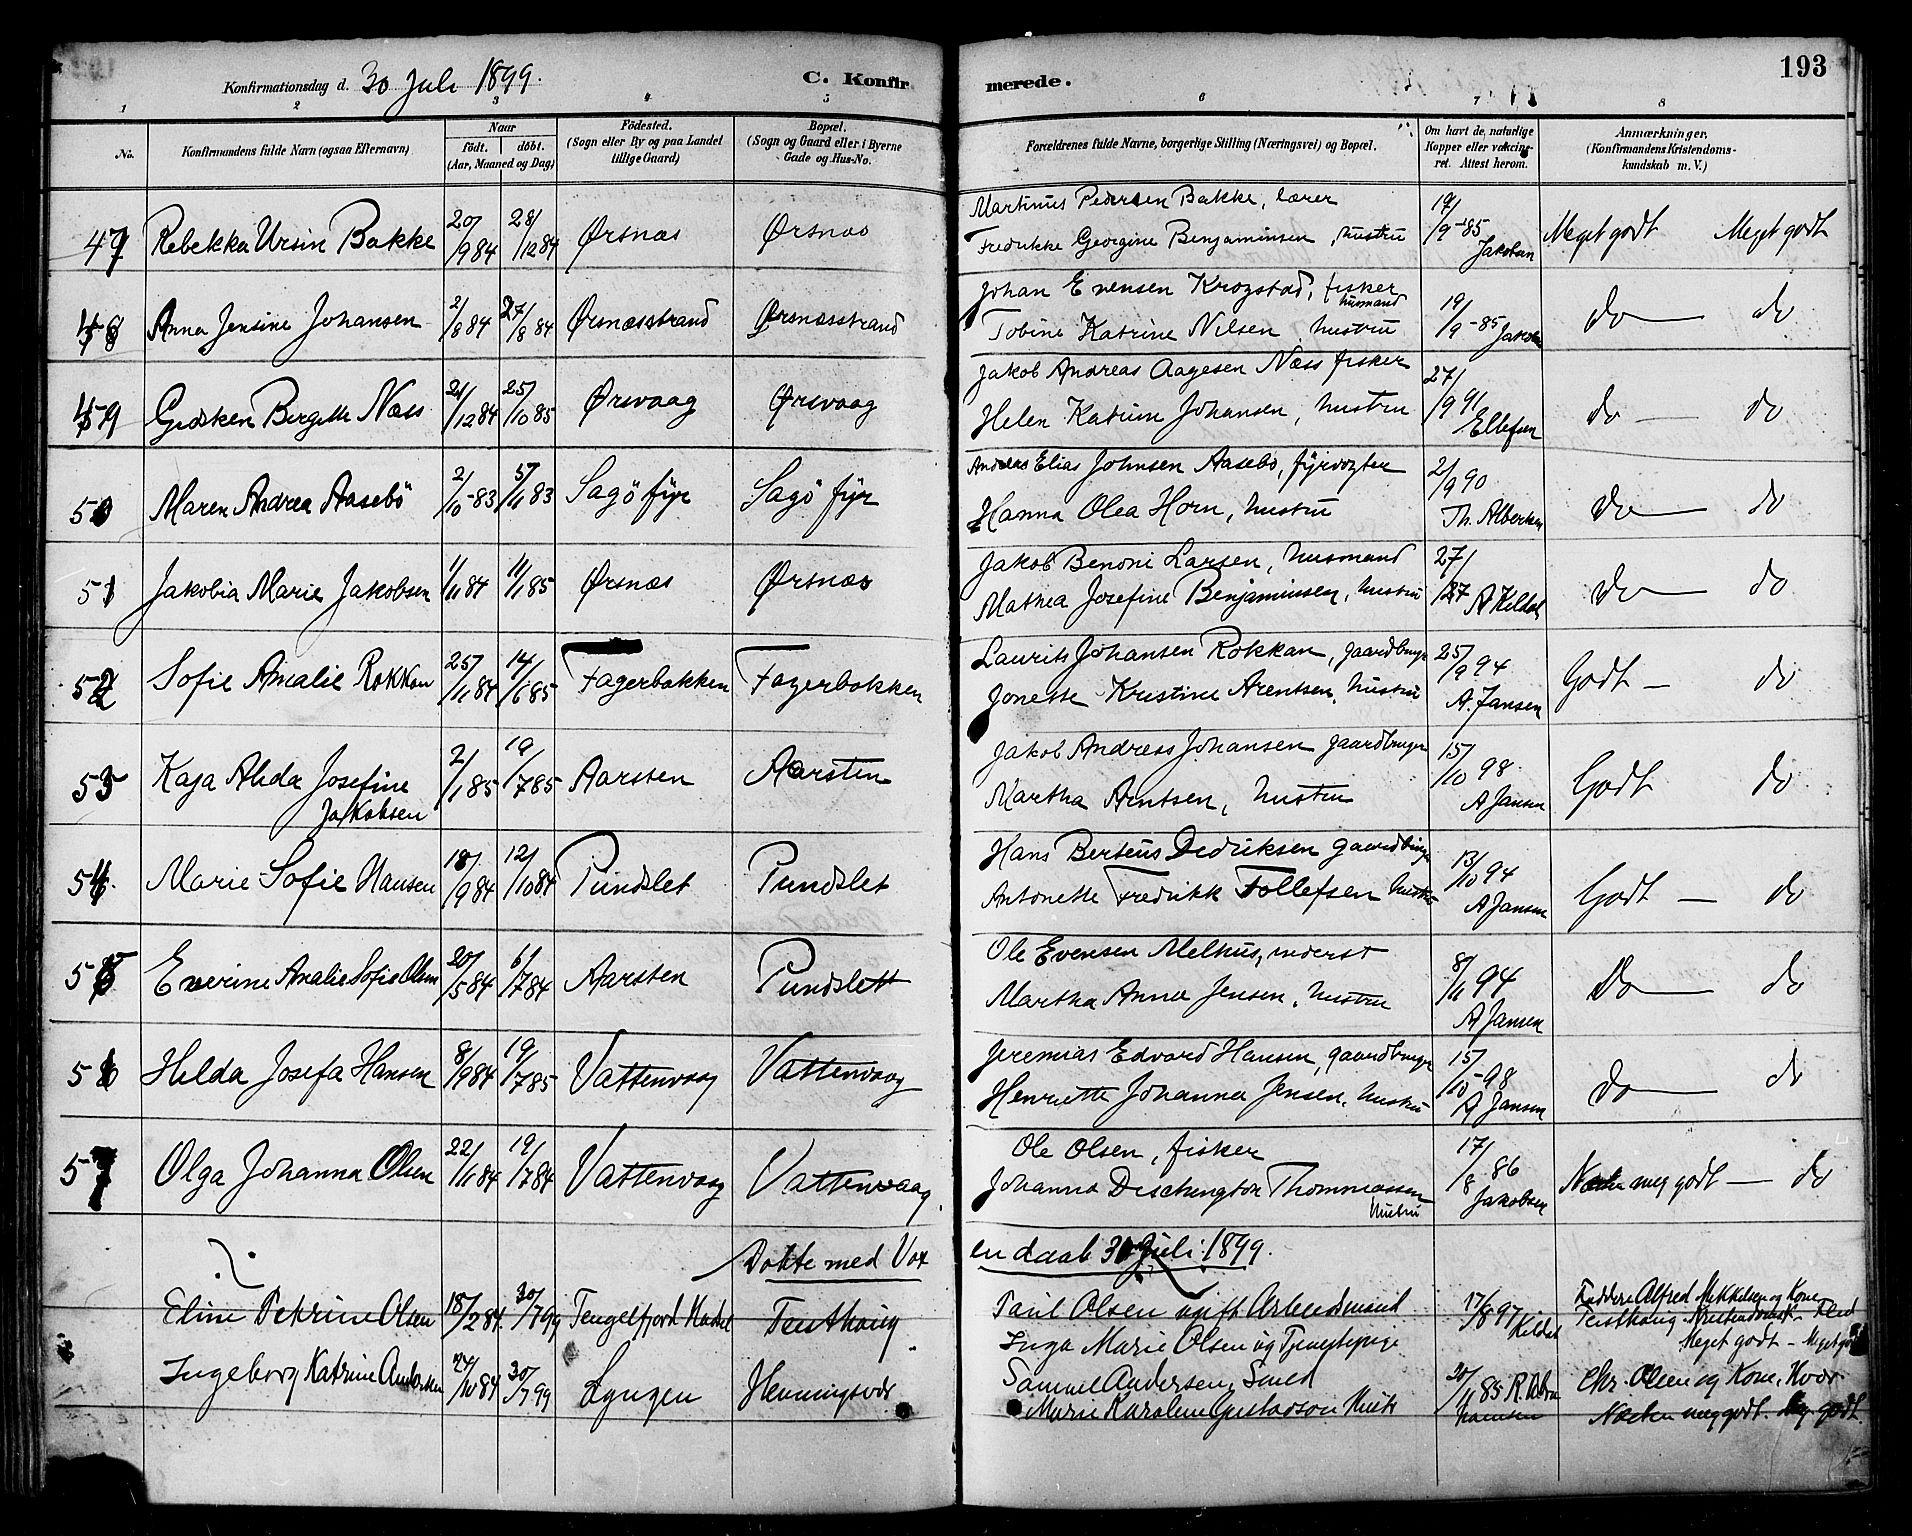 Konfirmationsdag d. 30 Juli 1899. C. Konfirmerede. 193
1 2 3 4 5 6 7 8
No. Konfirmandens fulde Navn (ogsaa Efternavn) Naar født. døbt. (Aar, Maaned og Dag) Fødested. (Sogn eller By og paa Landet tillige Gaard) Bopæl. (Sogn og Gaard eller i Byerne Gade og Hus-No. Forældrenes fulde Navne, borgerlige Stilling (Næringsvei) og Bopæl. Om havt de naturlige Kopper eller vakcineret. Attest herom. Anmærkninger. (Konfirmandens Kristendomskundskab m. V.)
Martinus Pedersen Bakke, lærer
47 Rebekka Ursin Bakke 20/9 84 28/12 84 Ørsnæs Ørsnæs Fredrikke Georgine Benjaminsen, hustru 19/9-85 Jakobsen Meget godt Meget godt
Johan Evensen Krogstad, fisker husmand
48 Anna Jensine Johansen 2/8 84 27/8 84 Ørsnæsstrand Ørsnæsstrand Tobine Katrine Nilsen hustru 19/9-85 Do do
Jakob Andreas Aagesen Næss fisker
49 Gidsken Bergitte Næss 21/12 84 25/10 85 Ørsvaag Ørsvaag Helen Katrine Johansen, hustru 27/9 91 Ellefsen do do
Andreas Elias Johnsen Aasebø, fyrvogter
50 Maren Andrea Aasebö 2/10-83 5/11 83 Sagö fyr Sagö fyr Hanna Olea Horn, hustru 2/9 90 Th. Albertsen Do do
Jakob Benoni Larsen, husmand
51 Jakobia Marie Jakobsen 1/11 84 11/1 85 Ørsnæs Ørsnæs Mathea Josefine Benjaminsen, hustru 27/ Do do
Laurits Johansen Rokkan, gaardbruger
52 Sofie Amalie Rokkan 25/11 84 14/6 85 Fagerbakken Fagerbakken Jonette Kristine Arentsen, hustru 25/9 94 A. Jansen Godt do
Jakob Andreas Johansen gaardbruger
53 Kaja Alida Josefine Jakobsen 2/1 85 19/7 85 Aarsten Aarsten Martha Arntsen, hustru 15/10 98 A Jansen Godt do
Hans Berteus Dediksen gaardbruger
54. Marie Sofie Hansen 18/9 84 12/10 84 Pundslet Pundslet Antonette Fredrikk Tollefsen hustru 13/10 94 A Jansen Godt do
Ole Evensen Melhus, inderst
55 Everine Amalie Sofie Olsen 20/5 84 6/7 84 Aarsten Pundslett Martha Anna Jensen, hustru 8/11 94 A Jansen Do do
Jeremias Edvard Hansen, gaardbruger
56 Helda Josefa Hansen 8/9 84 19/7 85 Vattenvaag Vattenvaag Henriette Johanna Jensen, hustru 15/10-98 A Jansen Do do
Ole Olsen, fisker
57 Olga Johanna Olsen 22/1 84 19/7 84 Vattenvaag Vattenvaag. Johanna Dischington Thommassen hustru 17/8 86 Jakobsen Næsten meg godt do
Døbte med Voxendaab 30 Juli 1899.
Eline Petrine Olsen 18/2 84. 30/7 99 Tengelfjord Hadsel Teisthaug Paul Olsen ugift Arbeidsmand 17/8 97 Kildal Faddere Alfred Mikkelsen og Kone
Inga Marie Olsen ug Tjenestepige Teisthaug Kristendomsk. Flid Meget godt – Meget godt
Ingeborg Katrine Andersen 24/10 84 30/7 99 Lyngen Henningsvær Samuel Andersen, Smed 20/11 85 Chr. Olsen og Kone, Hvær
Marie Karoline Gustavson Hustr Næsten meg godt. Meg. godt.